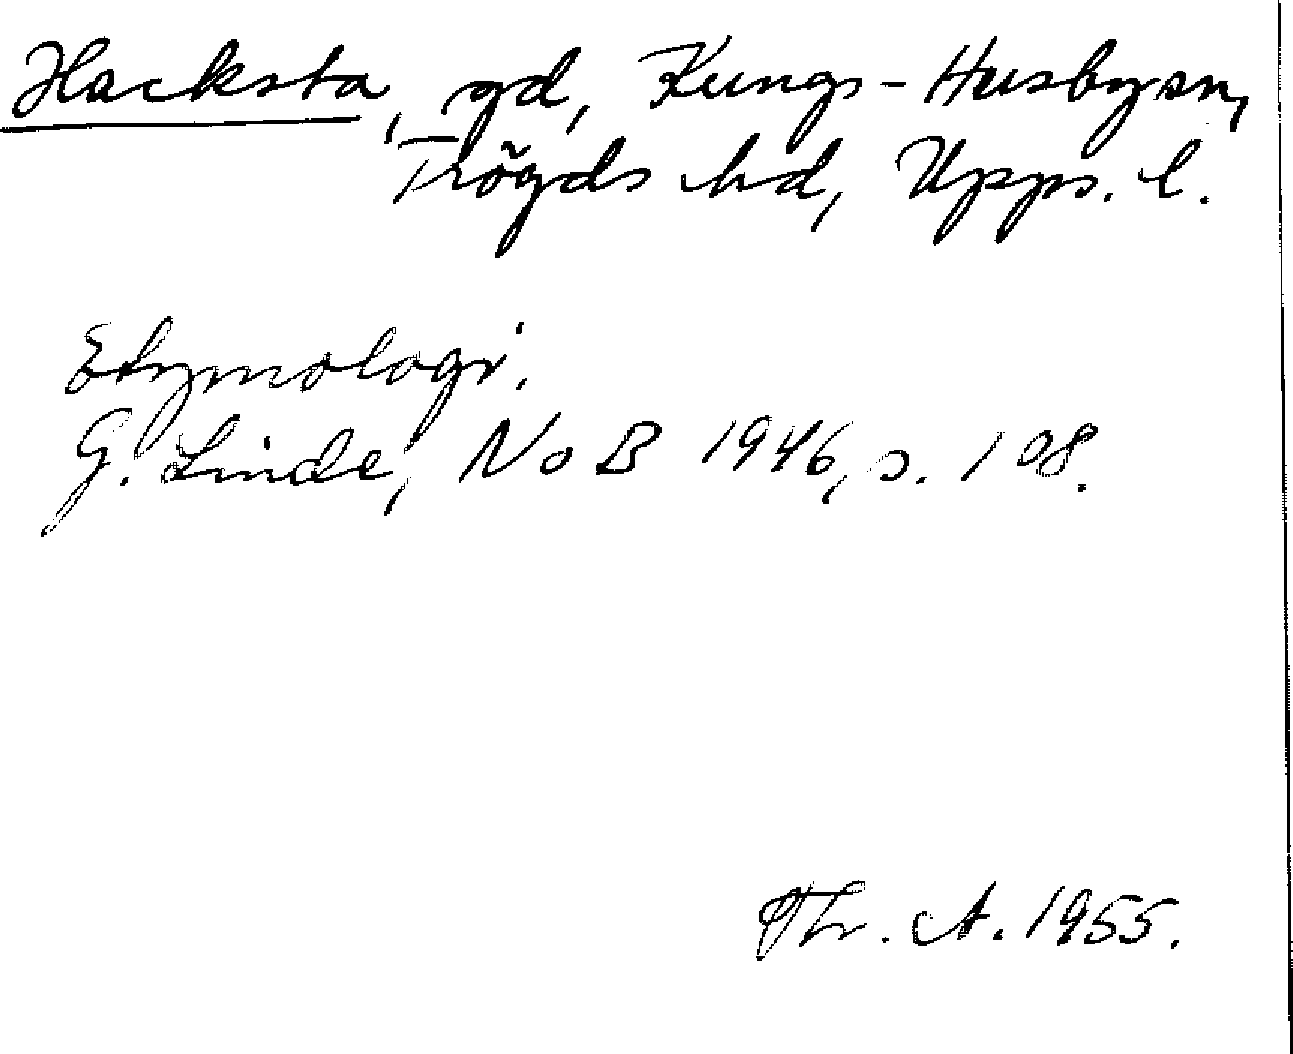 Hacksta, gd, Kungs-Husby sn,
Trögds hd, Upps. l.
Etymologi.
G. Linde, NoB 1946, s. 108.
Thr. A. 1955.